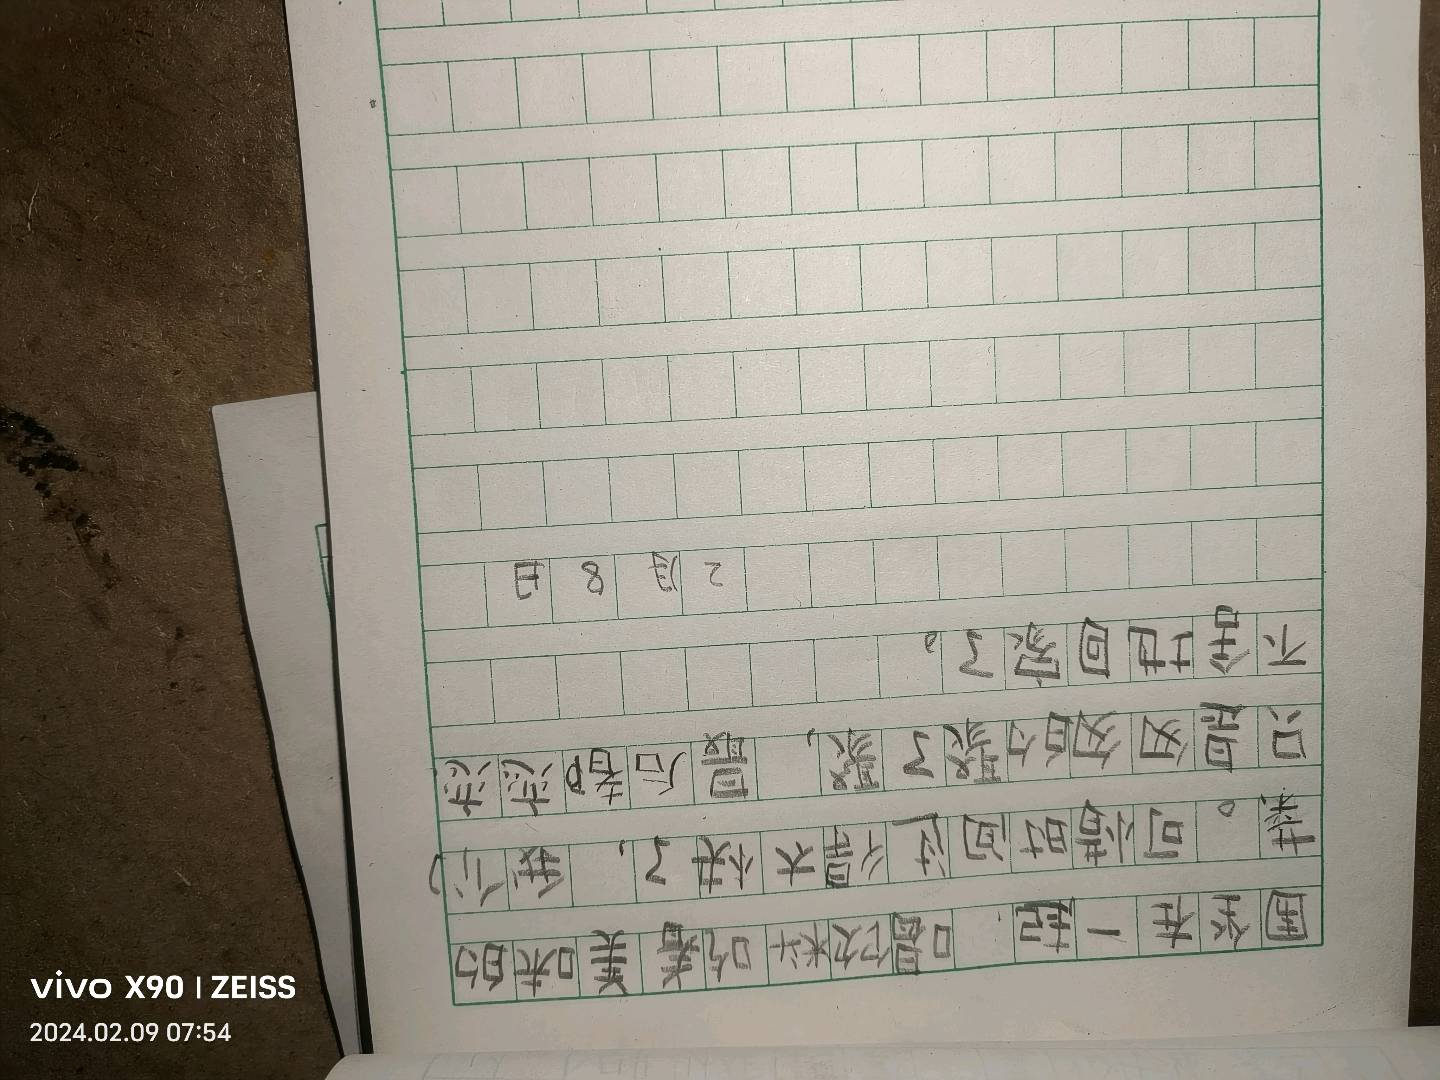 围坐在一起，喝饮料吃着美味的
菜。可惜时间过得太快了，我们
只是匆匆的聚了聚，最后都恋恋
不舍地回家了。
2月8日
vivo X90 | ZEISS
2024.02.09 07:54